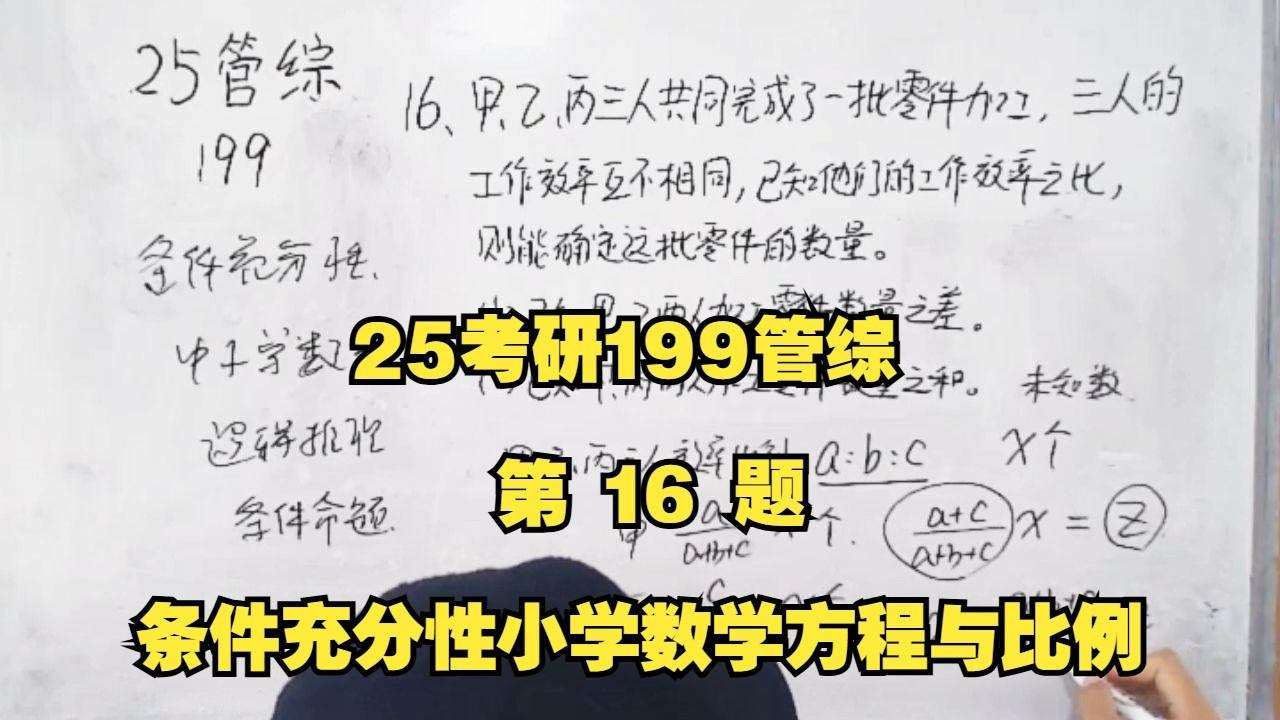 25管综
199
条件充分性、
中小学数
逻辑推理
条件命题.
16、甲、乙、丙三人共同完成了一批零件加工，三人的
工作效率互不相同，已知他们的工作效率之比，
则能确定这批零件的数量。
零件数量之差。
之和。 未知数
a:b:c x个
a+c/a+b+c x = Z
25考研199管综
第 16 题
条件充分性小学数学方程与比例